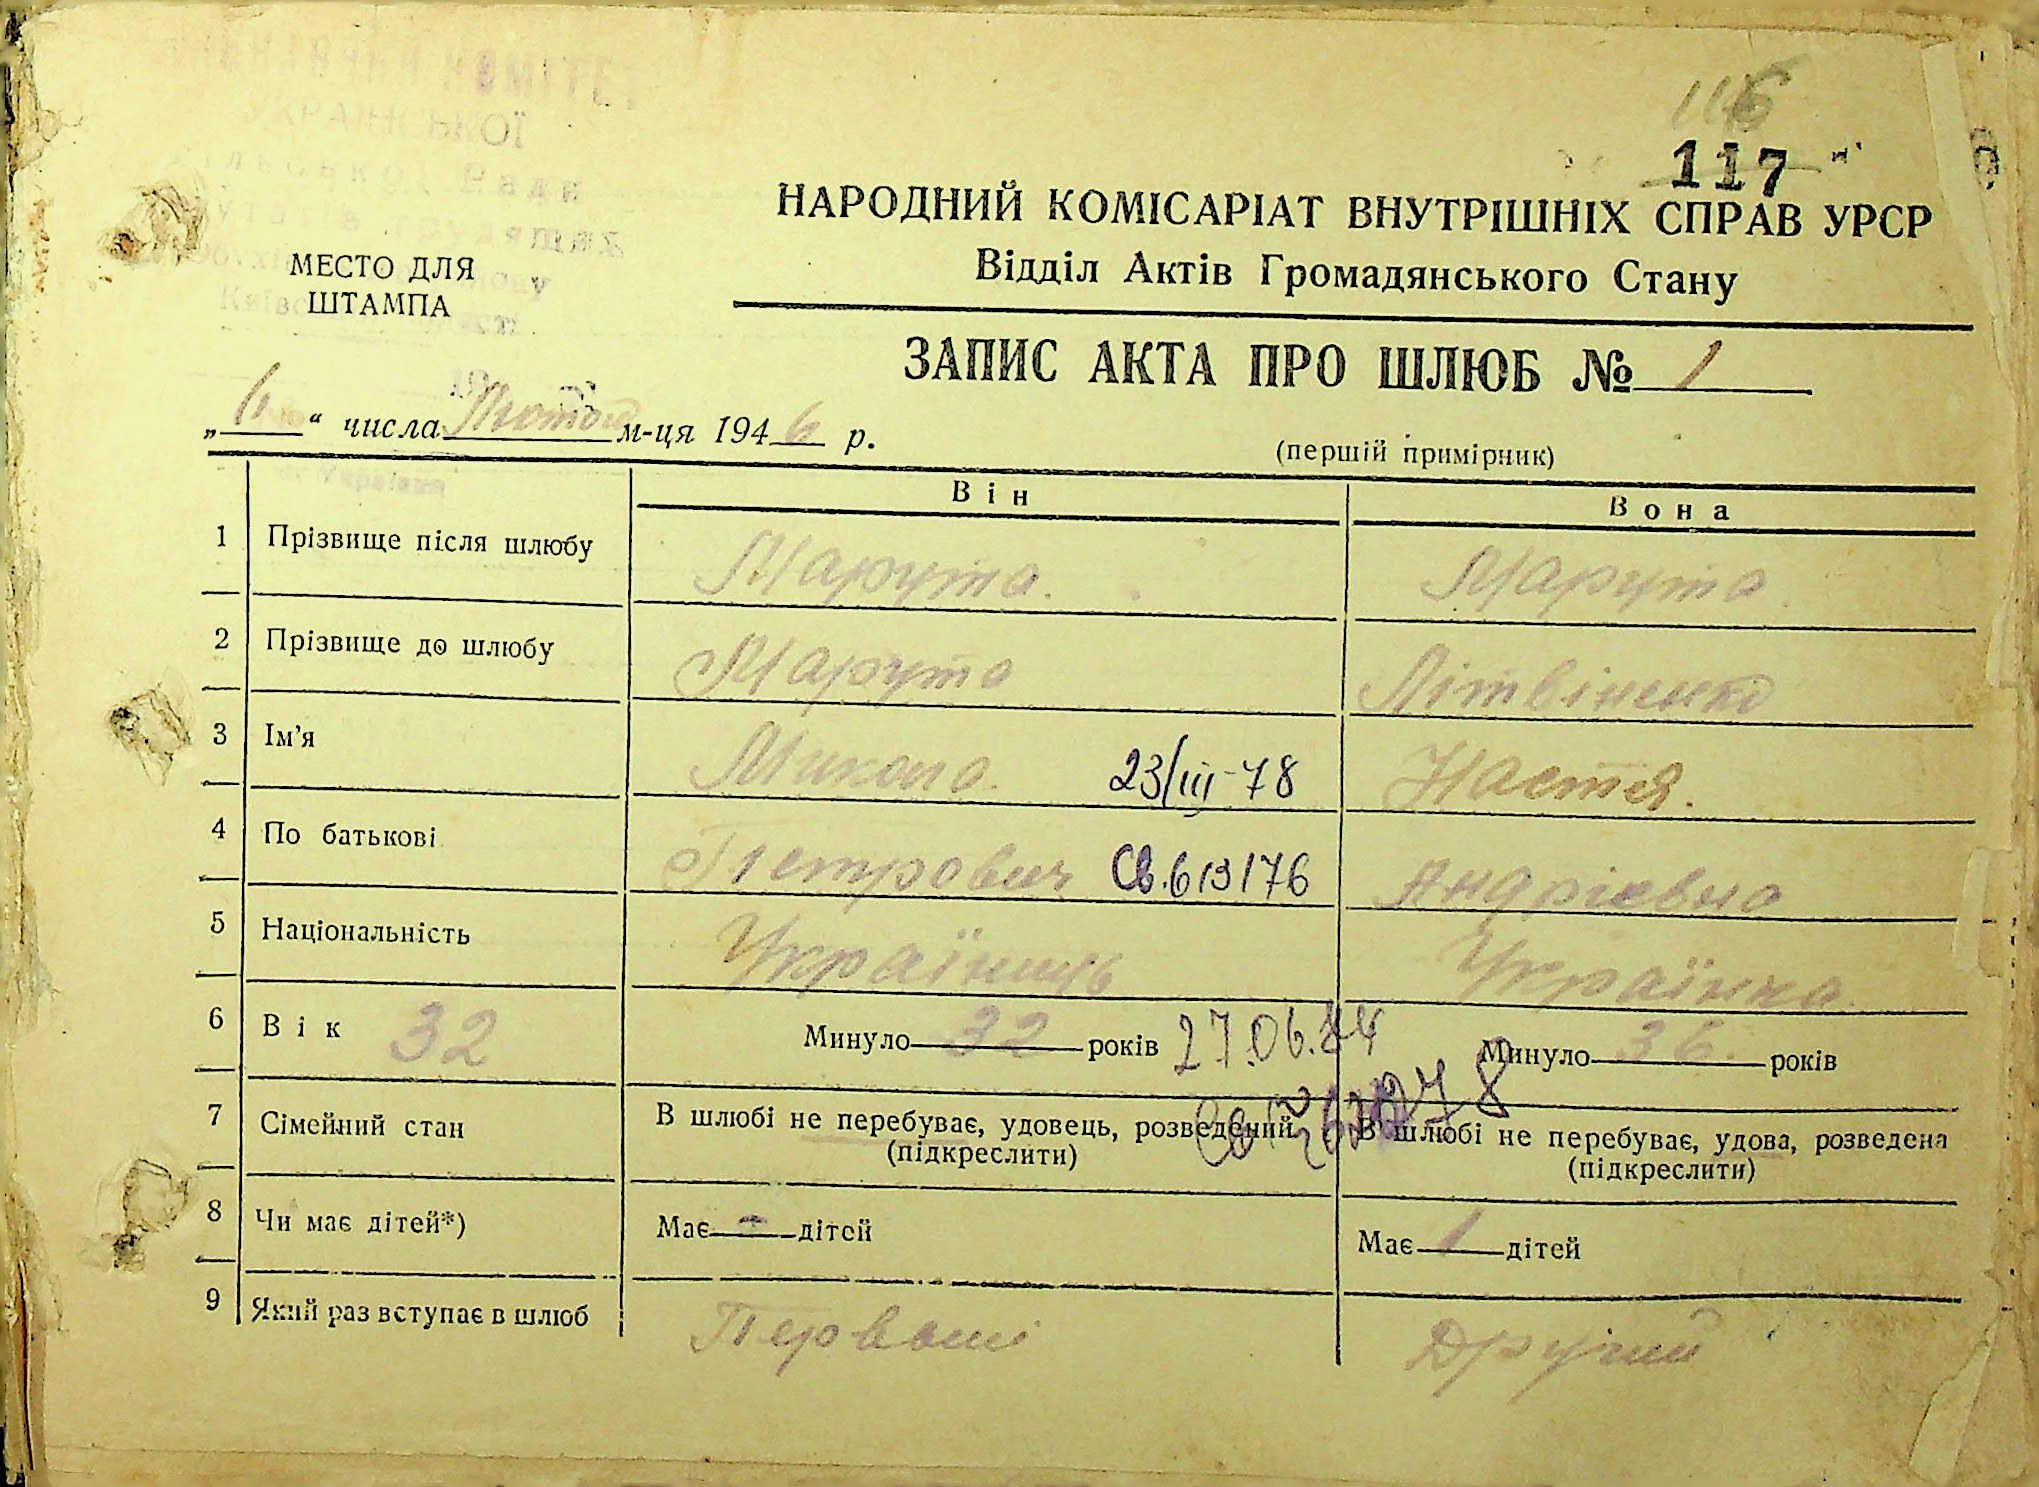 116
117
УКРАЇНСЬКОЇ
НАРОДНИЙ КОМІСАРІАТ ВНУТРІШНІХ СПРАВ УРСР
Відділ Актів Громадянського Стану
МЕСТО ДЛЯ
ШТАМПА
ЗАПИС АКТА ПРО ШЛЮБ № 1
„ 6 “ числа Лютого м-ця 1946 р.
(першій примірник)
Він Вона
1 Прізвище після шлюбу Марута. Марута
2 Прізвище до шлюбу Марута Літвіненко
3 Ім'я Микола. 23/III-78 Настя.
4 По батькові Петрович Св.613176 Андріевна
5 Національність Українець Українка
6 Вік 32 Минуло 32 років 27.06.84 Минуло 36. років
7 Сімейний стан В шлюбі не перебуває, удовець, розведений В шлюбі не перебуває, удова, розведена
(підкреслити) (підкреслити)
8 Чи має дітей*) Має - дітей Має 1 дітей
9 Який раз вступає в шлюб Первый Другий